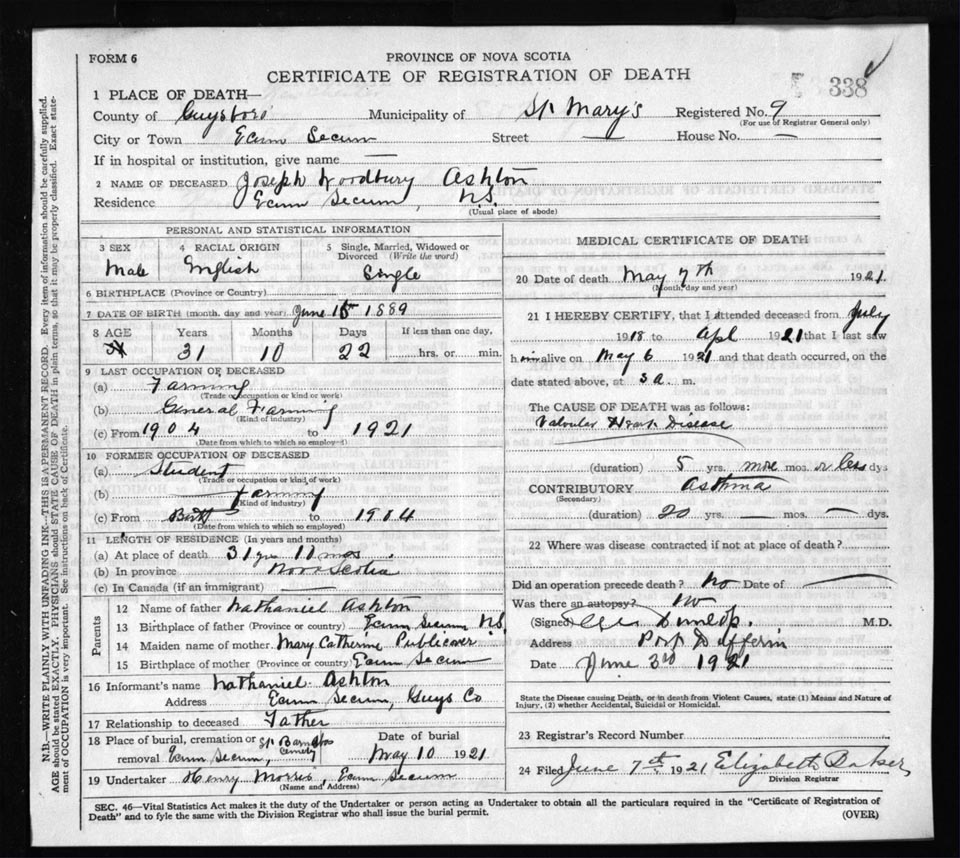 FORM 6
PROVINCE OF NOVA SCOTIA
CERTIFICATE OF REGISTRATION OF DEATH
338
1 PLACE OF DEATH—
County of Guysboro Municipality of St Mary's Registered No. 9
(For use of Registrar General only)
City or Town Ecum Secum Street — House No. —
If in hospital or institution, give name —
2 NAME OF DECEASED Joseph Woodbury Ashton
Residence Ecum Secum, N.S.
(Usual place of abode)
PERSONAL AND STATISTICAL INFORMATION
3 SEX Male
4 RACIAL ORIGIN English
5 Single, Married, Widowed or Divorced (Write the word) Single
6 BIRTHPLACE (Province or Country)
7 DATE OF BIRTH (month, day and year) June 15 1889
8 AGE Years 31 Months 10 Days 22 If less than one day, hrs. or min.
9 LAST OCCUPATION OF DECEASED
(a) Farming
(Trade or occupation or kind or work)
(b) General Farming
(Kind of industry)
(c) From 1904 to 1921
(Date from which to which so employed)
10 FORMER OCCUPATION OF DECEASED
(a) Student
(Trade or occupation or kind of work)
(b) Farming
(Kind of industry)
(c) From Birth to 1904
(Date from which to which so employed)
11 LENGTH OF RESIDENCE (In years and months)
(a) At place of death 31 yrs 11 mos.
(b) In province Nova Scotia
(c) In Canada (if an immigrant) —
Parents
12 Name of father Nathaniel Ashton
13 Birthplace of father (Province or country) Ecum Secum N.S.
14 Maiden name of mother Mary Catherine Publicover
15 Birthplace of mother (Province or country) Ecum Secum
16 Informant's name Nathaniel Ashton
Address Ecum Secum, Guys Co
17 Relationship to deceased Father
18 Place of burial, cremation or removal Ecum Secum, St Barnabas Cemetery Date of burial May 10 1921
19 Undertaker Henry Morris, Ecum Secum
(Name and Address)
MEDICAL CERTIFICATE OF DEATH
20 Date of death May 7th 1921
(Month, day and year)
21 I HEREBY CERTIFY, that I attended deceased from July
1918 to Apl 1921 that I last saw
him alive on May 6 1921 and that death occurred, on the
date stated above, at 3 a. m.
The CAUSE OF DEATH was as follows:
Valvular Heart Disease
(duration) 5 yrs. more mos. or less dys
CONTRIBUTORY Asthma
(Secondary)
(duration) 20 yrs. mos. — dys.
22 Where was disease contracted if not at place of death?
Did an operation precede death? No Date of —
Was there an autopsy? No
(Signed) Dunlop. M.D.
Address Port Dufferin
Date June 3rd 1921
State the Disease causing Death, or in death from Violent Causes, state (1) Means and Nature of
Injury, (2) whether Accidental, Suicidal or Homicidal.
23 Registrar's Record Number
24 Filed June 7th 1921 Elizabeth Baker
Division Registrar
SEC. 46—Vital Statistics Act makes it the duty of the Undertaker or person acting as Undertaker to obtain all the particulars required in the "Certificate of Registration of
Death" and to fyle the same with the Division Registrar who shall issue the burial permit.
(OVER)
N.B.—WRITE PLAINLY WITH UNFADING INK—THIS IS A PERMANENT RECORD. Every item of information should be carefully supplied.
AGE should be stated EXACTLY. PHYSICIANS should STATE CAUSE OF DEATH in plain terms, so that it may be properly classified. Exact state-
ment of OCCUPATION is very important. See instructions on back of Certificate.